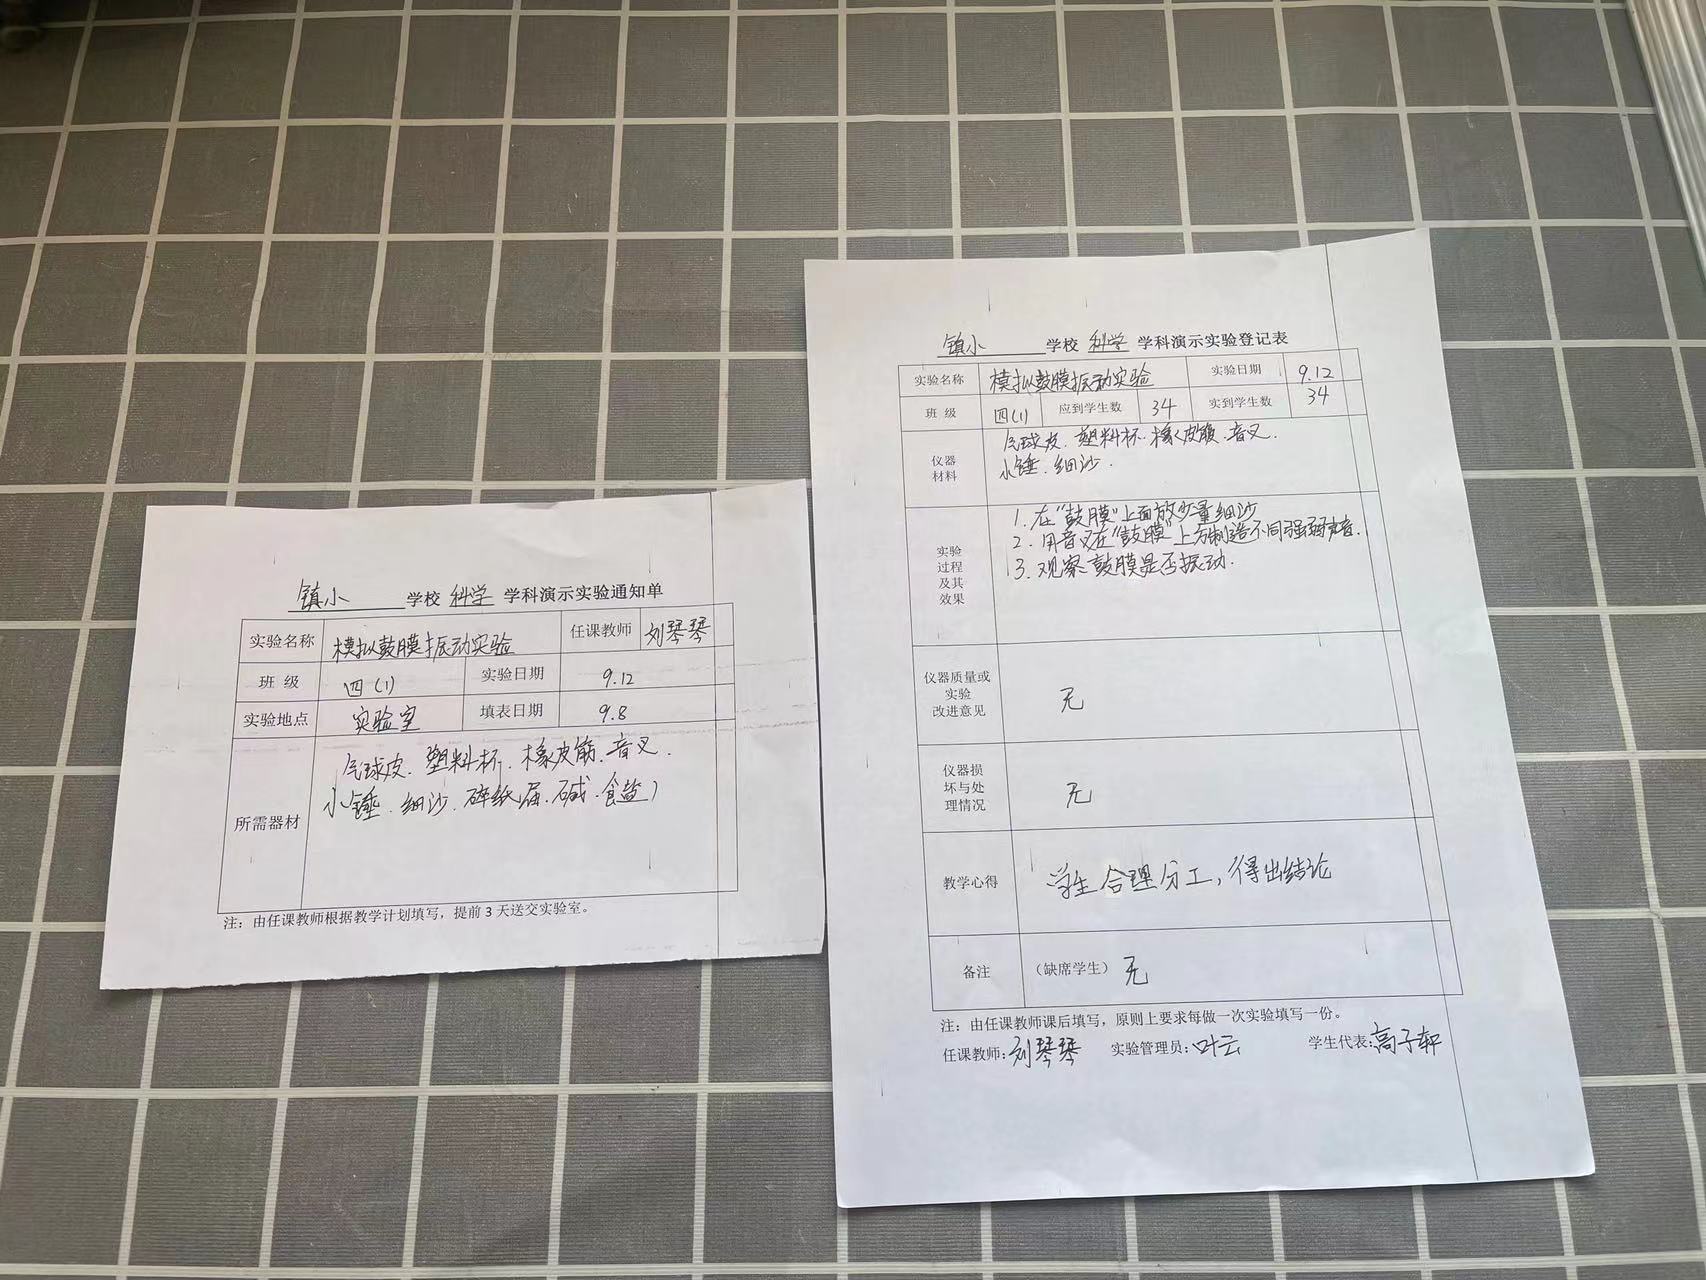 镇小 学校 科学 学科演示实验通知单
实验名称 模拟鼓膜振动实验 任课教师 刘琴琴
班 级 四(1) 实验日期 9.12
实验地点 实验室 填表日期 9.8
所需器材
气球皮、塑料杯、橡皮筋、音叉、
小锤、细沙、碎纸屑、碱、食盐)
注：由任课教师根据教学计划填写，提前 3 天送交实验室。
镇小 学校 科学 学科演示实验登记表
实验名称 模拟鼓膜振动实验 实验日期 9.12
班 级 四(1) 应到学生数 34 实到学生数 34
仪器
材料
气球皮、塑料杯、橡皮筋、音叉、
小锤、细沙.
实验
过程
及其
效果
1. 在“鼓膜”上面放少量细沙
2. 用音叉在“鼓膜”上方制造不同强弱声音.
3. 观察鼓膜是否振动.
仪器质量或
实验
改进意见
无
仪器损
坏与处
理情况
无
教学心得 学生合理分工，得出结论
备注 （缺席学生） 无
注：由任课教师课后填写，原则上要求每做一次实验填写一份。
任课教师:刘琴琴 实验管理员:叶云 学生代表:高子轩